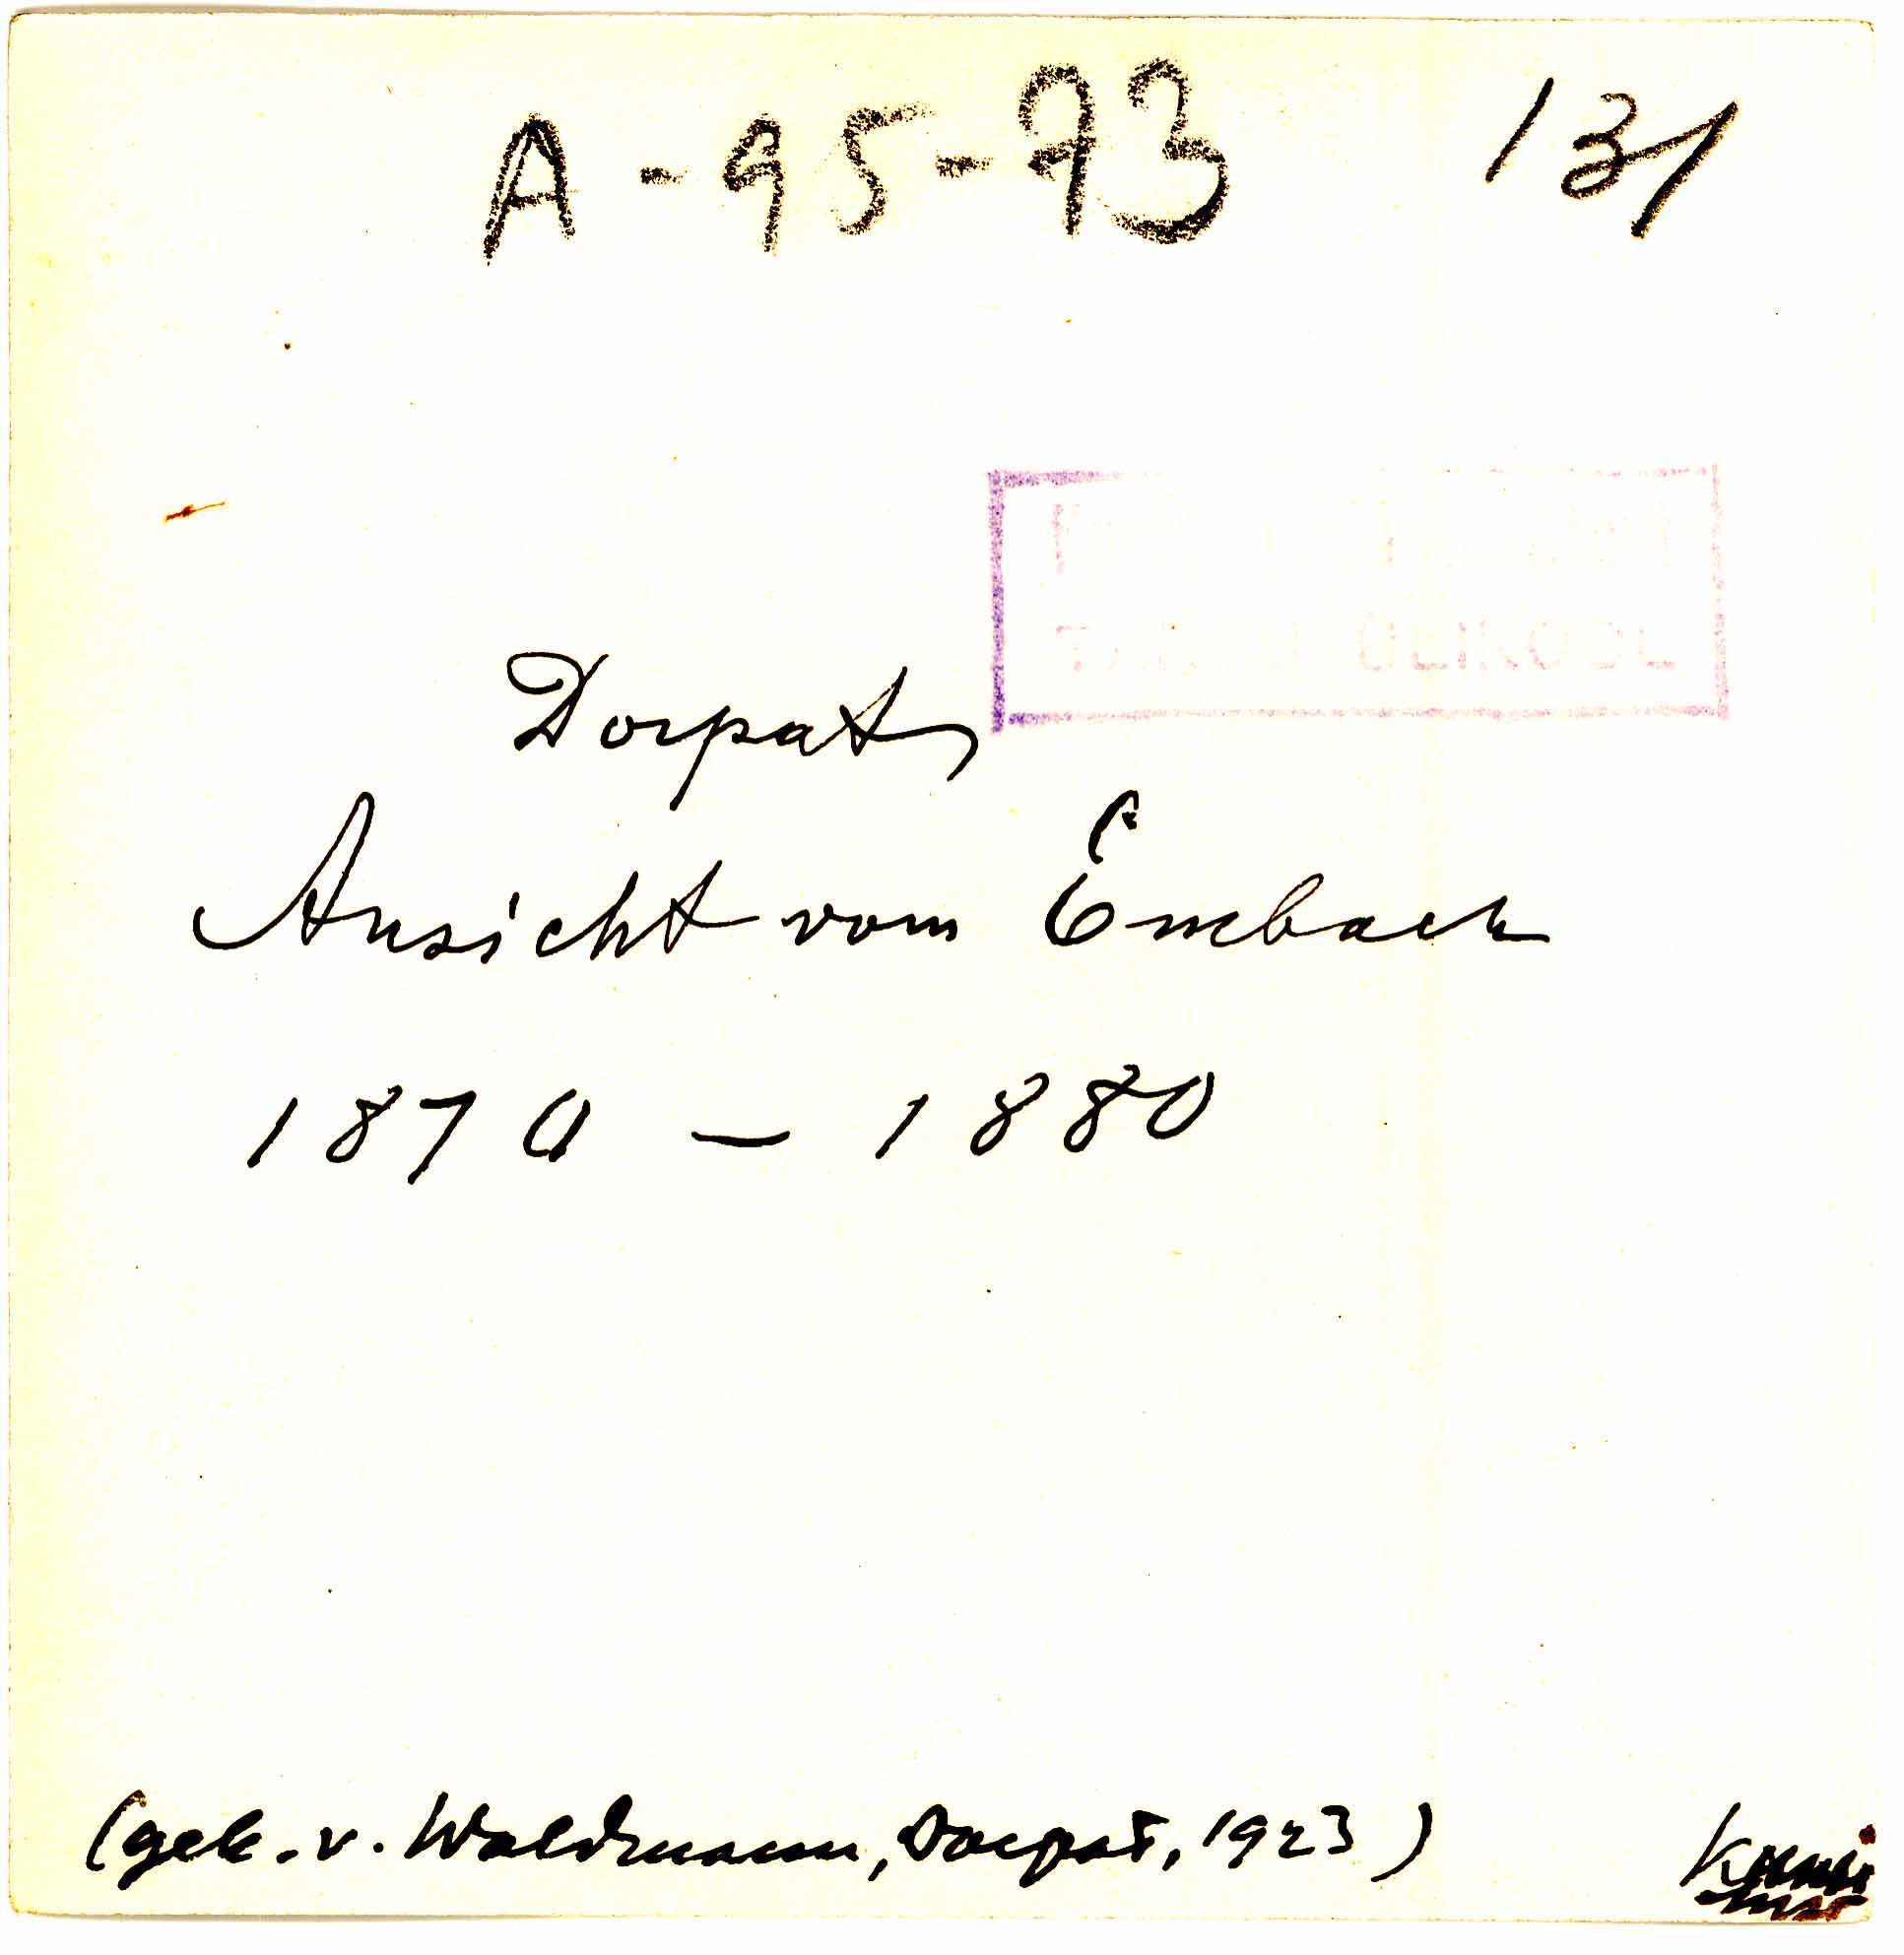 A-95-73 131
ÜLIKOOL
Dorpat
Ansicht vom Embach
1870 – 1880
(gek. v. Waldmann, Dorpat, 1923)